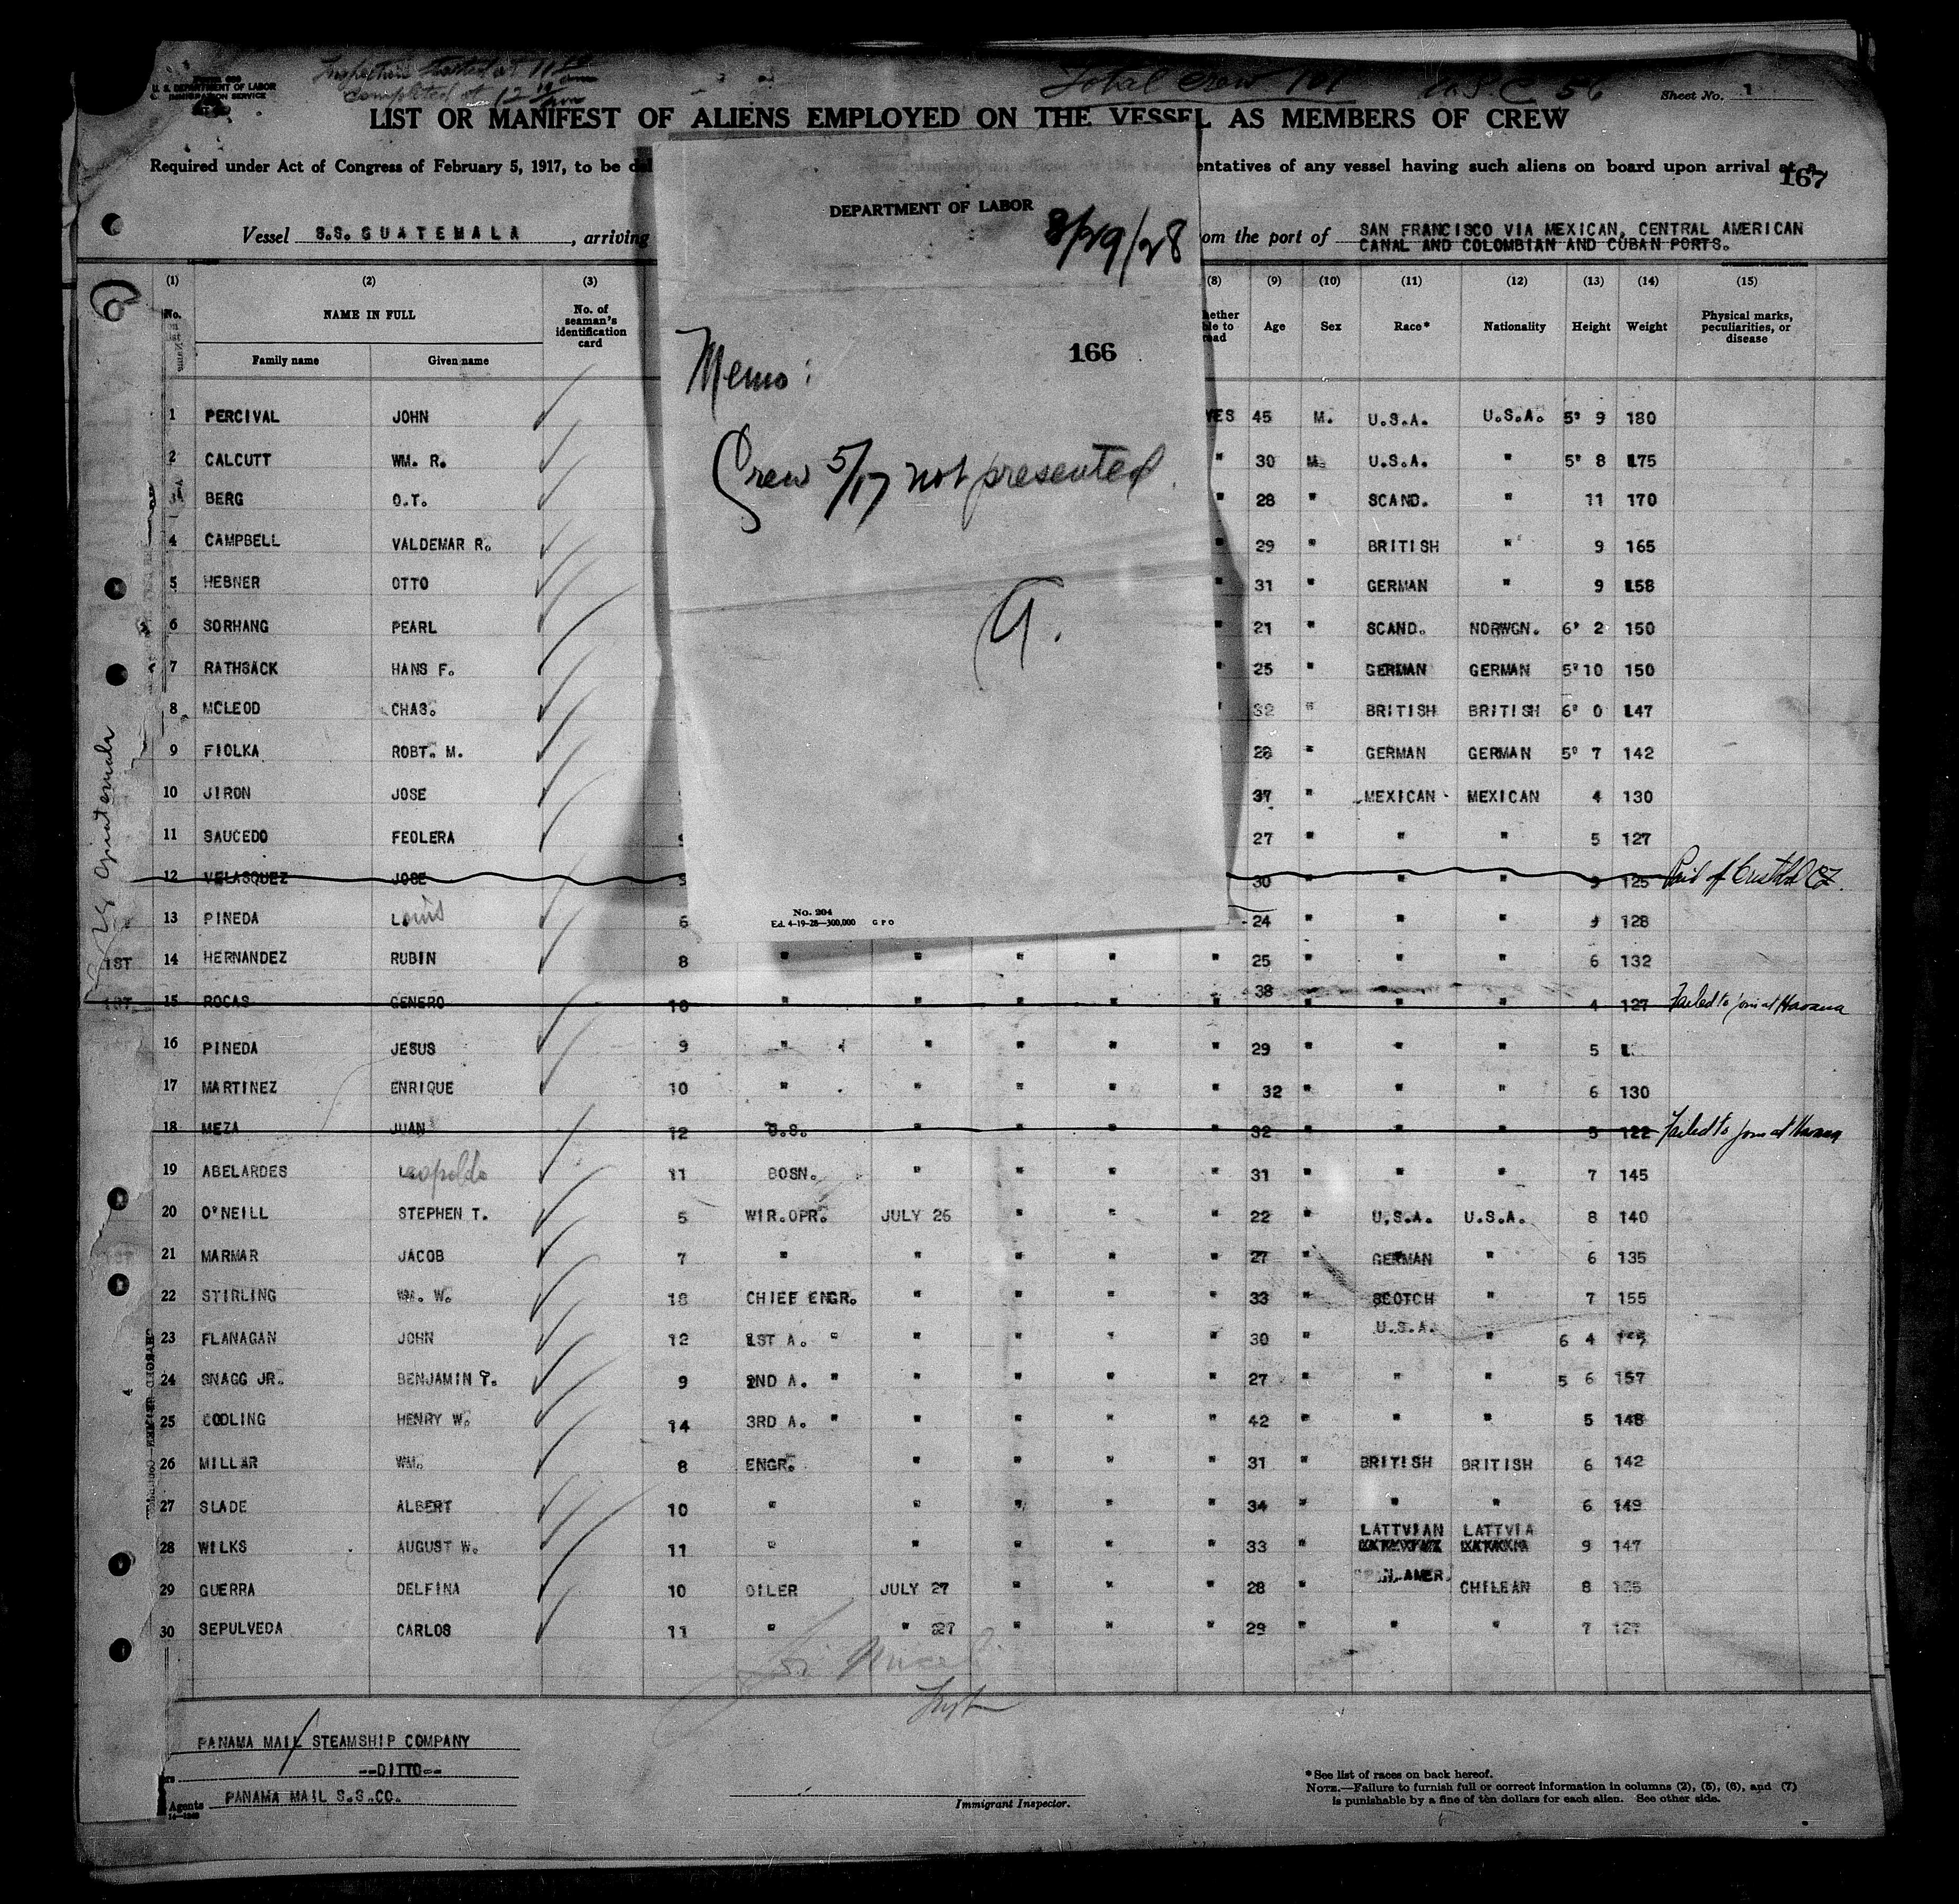 U. S. DEPARTMENT OF LABOR
IMMIGRATION SERVICE
Inspection started at 11
Completed at 12
Total Crew 101 U.S.C 56 Sheet No. 1
LIST OR MANIFEST OF ALIENS EMPLOYED ON THE VESSEL AS MEMBERS OF CREW
Required under Act of Congress of February 5, 1917, to be entatives of any vessel having such aliens on board upon arrival at a
167
Vessel S.S. GUATEMALA , arriving om the port of SAN FRANCISCO VIA MEXICAN, CENTRAL AMERICAN
CANAL AND COLOMBIAN AND CUBAN PORTS.
DEPARTMENT OF LABOR
8/29/28
166
Memo:
Crew 5/17 not presented.
No. 204
Ed. 4-19-28—300,000 GPO
SS Guatemala
(1) (2) (3) (8) (9) (10) (11) (12) (13) (14) (15)
No. NAME IN FULL No. of seaman's identification card hether ble to read Age Sex Race* Nationality Height Weight Physical marks, peculiarities, or disease
Family name Given name
1 PERCIVAL JOHN YES 45 M. U.S.A. U.S.A. 5' 9 180
2 CALCUTT WM. R. " 30 M. U.S.A. " 5' 8 175
3 BERG O.T. " 28 " SCAND. " 11 170
4 CAMPBELL VALDEMAR R. " 29 " BRITISH " 9 165
5 HEBNER OTTO " 31 " GERMAN " 9 158
6 SORHANG PEARL " 21 " SCAND. NORWGN. 6' 2 150
7 RATHSACK HANS F. " 25 " GERMAN GERMAN 5' 10 150
8 MCLEOD CHAS. " 32 " BRITISH BRITISH 6' 0 147
9 FIOLKA ROBT. M. 28 " GERMAN GERMAN 5' 7 142
10 JIRON JOSE 37 " MEXICAN MEXICAN 4 130
11 SAUCEDO FEOLERA 27 " " " 5 127
12 VELASQUEZ JOSE 30 " " 125 Paid of Cristobal CZ.
13 PINEDA Louis 6 24 " " " 128
1ST 14 HERNANDEZ RUBIN 8 " " " " " 25 " " " 6 132
1ST 15 ROCAS GENERO 10 " " " " " 38 " " " 4 127 Failed to join at Havana
16 PINEDA JESUS 9 " " " " " 29 " " " 5
17 MARTINEZ ENRIQUE 10 " " " " " 32 " " " 6 130
18 MEZA JUAN 12 " " " " 32 " " " 5 122 Failed to join at Havana
19 ABELARDES Leopoldo 11 BOSN. " " " " 31 " " " 7 145
20 O'NEILL STEPHEN T. 5 WIR.OPR. JULY 26 " " " 22 " U.S.A. U.S.A. 8 140
21 MARMAR JACOB 7 " " " " " 27 " GERMAN " 6 135
22 STIRLING WM. W. 18 CHIEF ENGR. " " " " 33 " SCOTCH " 7 155
23 FLANAGAN JOHN 12 1ST A. " " " " " 30 " U.S.A. " 6 4
24 SNAGG JR. BENJAMIN T. 9 2ND A. " " " " " 27 " " " 5 6 157
25 CODLING HENRY W. 14 3RD A. " " " " " 42 " " " 5 148
26 MILLAR WM. 8 ENGR. " " " " 31 " BRITISH BRITISH 6 142
27 SLADE ALBERT 10 " " " " " 34 " " " 6 149
28 WILKS AUGUST W. 11 " " " " " 33 " LATTVIAN LATTVIA 9 147
29 GUERRA DELFINA 10 OILER JULY 27 " " " 28 " SPAN.AMER. CHILEAN 8
30 SEPULVEDA CARLOS 11 " " 27 " " " 29 " " " 7 127
PANAMA MAIL STEAMSHIP COMPANY
--DITTO--
Agents PANAMA MAIL S.S.CO.
Immigrant Inspector.
*See list of races on back hereof.
NOTE.—Failure to furnish full or correct information in columns (2), (5), (6), and (7)
is punishable by a fine of ten dollars for each alien. See other side.